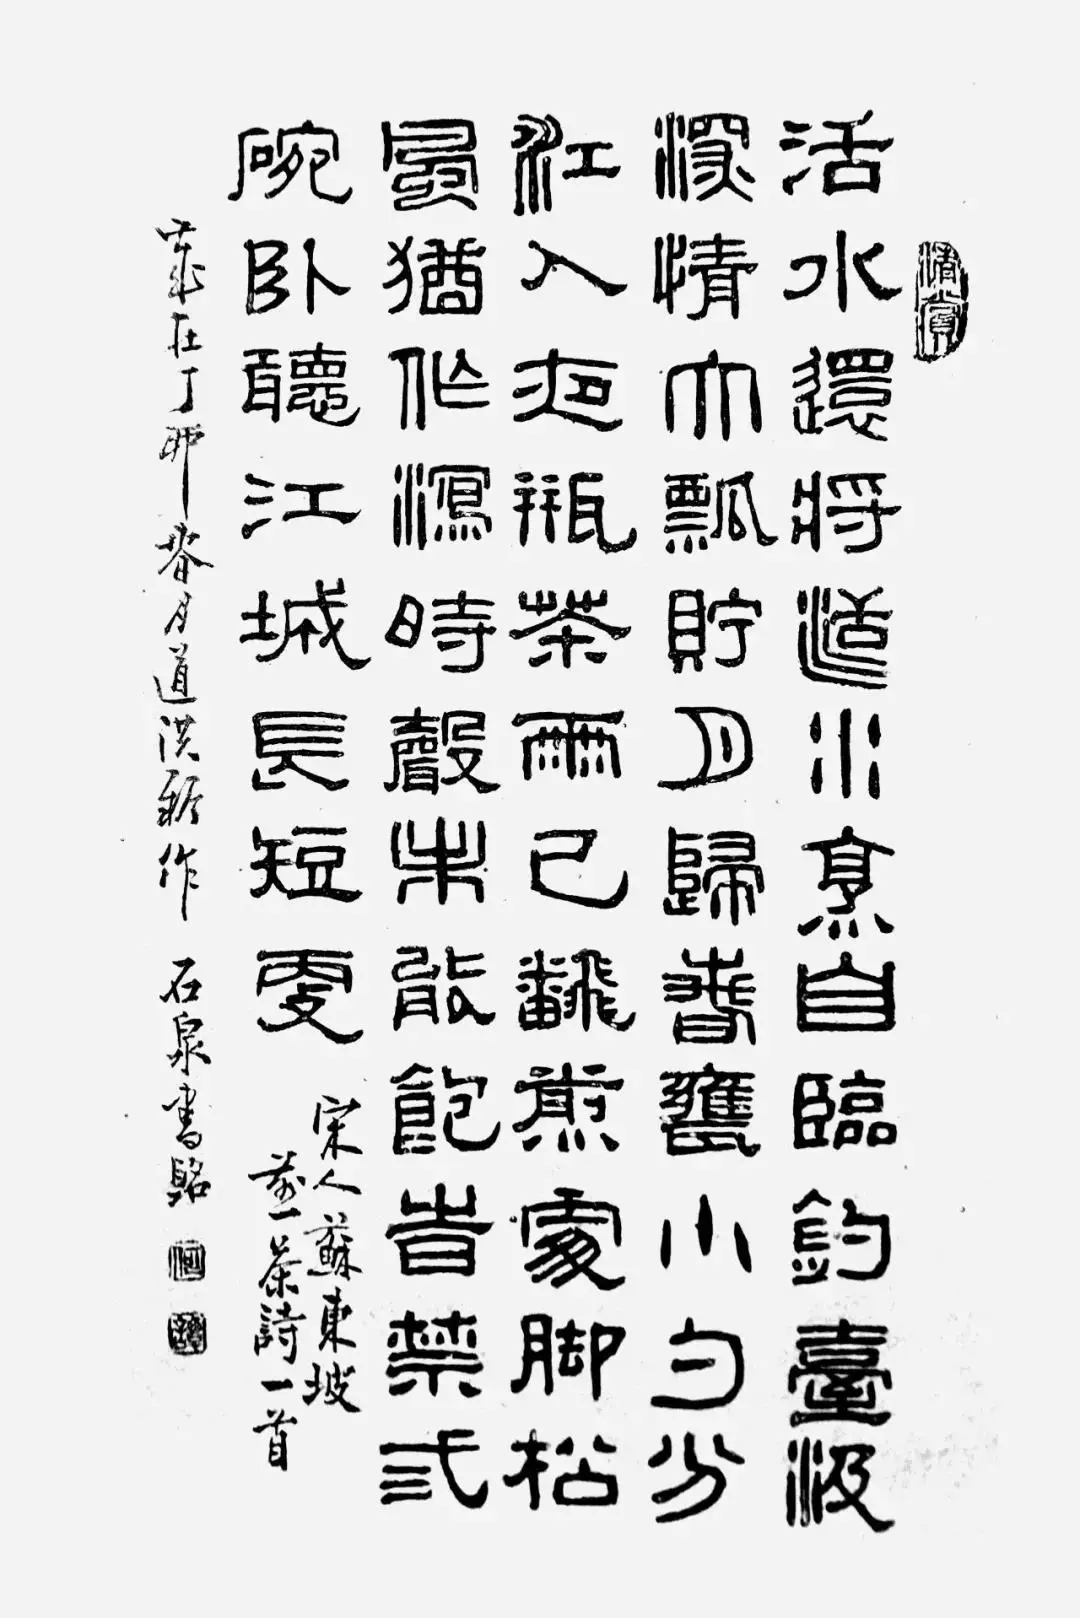 清賞
活水還將活火烹自臨釣臺汲
深情大瓢貯月歸春甕小勺分
江入夜瓶茶雨已翻煎處脚松
風猶作瀉時聲未能飽禁弎
碗卧聽江城長短更
宋人蘇東坡
煎茶詩一首
歲在丁卯春月道洪新作 石泉書銘